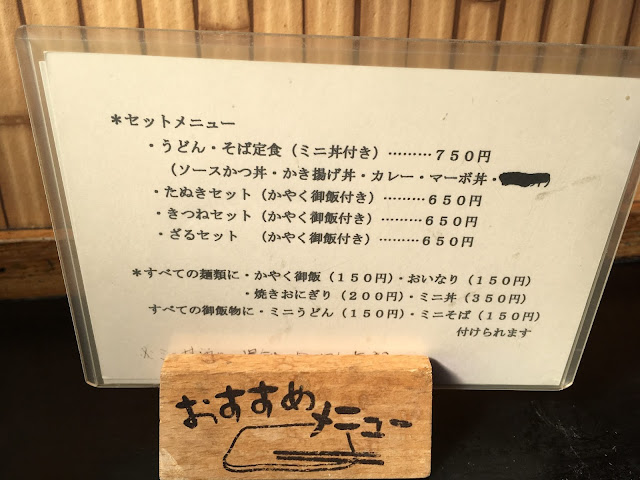 ＊セットメニュー
・うどん・そば定食（ミニ丼付き）………７５０円
（ソースかつ丼・かき揚げ丼・カレー・マーボ丼・
・たぬきセット（かやく御飯付き）………６５０円
・きつねセット（かやく御飯付き）………６５０円
・ざるセット　（かやく御飯付き）………６５０円
＊すべての麺類に・かやく御飯（１５０円）・おいなり（１５０円）
・焼きおにぎり（２００円）・ミニ丼（３５０円）
すべての御飯物に・ミニうどん（１５０円）・ミニそば（１５０円）
付けられます
おすすめ
メニュー